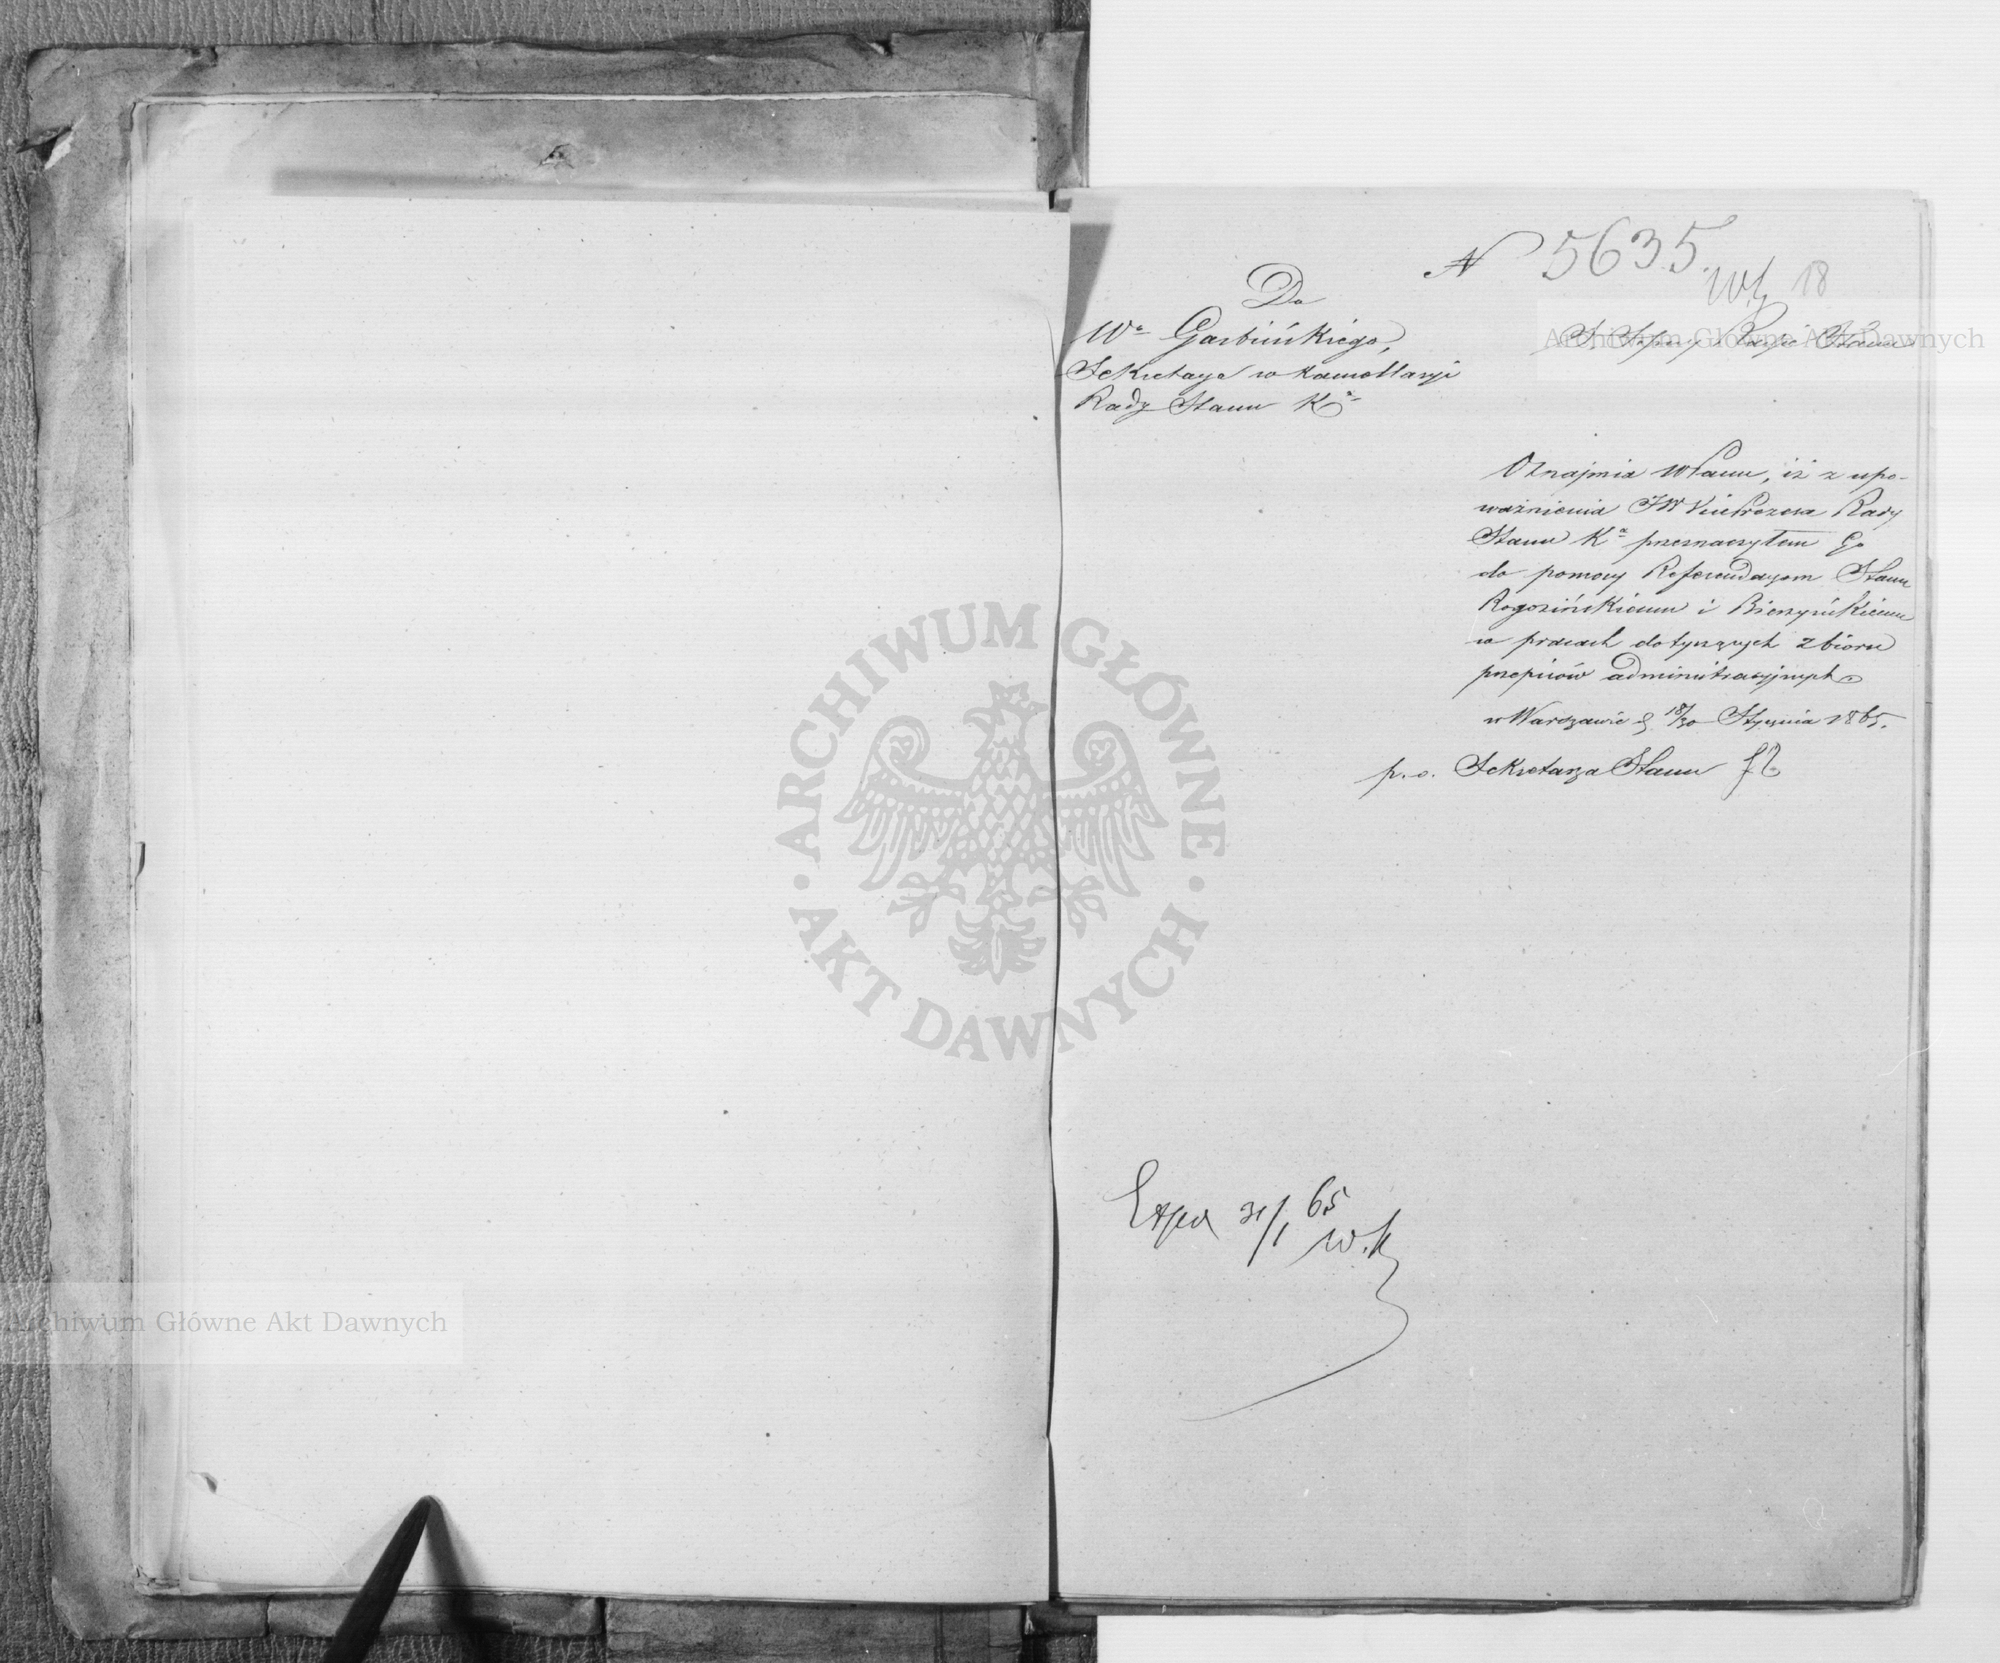 N 5635.
18
Do
Wo Garbińskiego,
Sekretarza w Kancellaryi
Rady Stanu Ka
Rady Stanu
Oznajmia WPanu, iż z upo-
ważnienia JW VicePrezesa Rady
Stanu Ka przeznaczyłem Go
do pomocy Referendarzom Stanu
Rogozińskiemu i Bieczyńskiemu
w pracach dotyczących zbioru
przepisów administracyjnych
w Warszawie d. 18/30 Stycznia 1865.
p. o. Sekretarza Stanu
Exped 31/1 65
W. K
ARCHIWUM GŁÓWNE
· AKT DAWNYCH ·
Archiwum Główne Akt Dawnych
Archiwum Główne Akt Dawnych